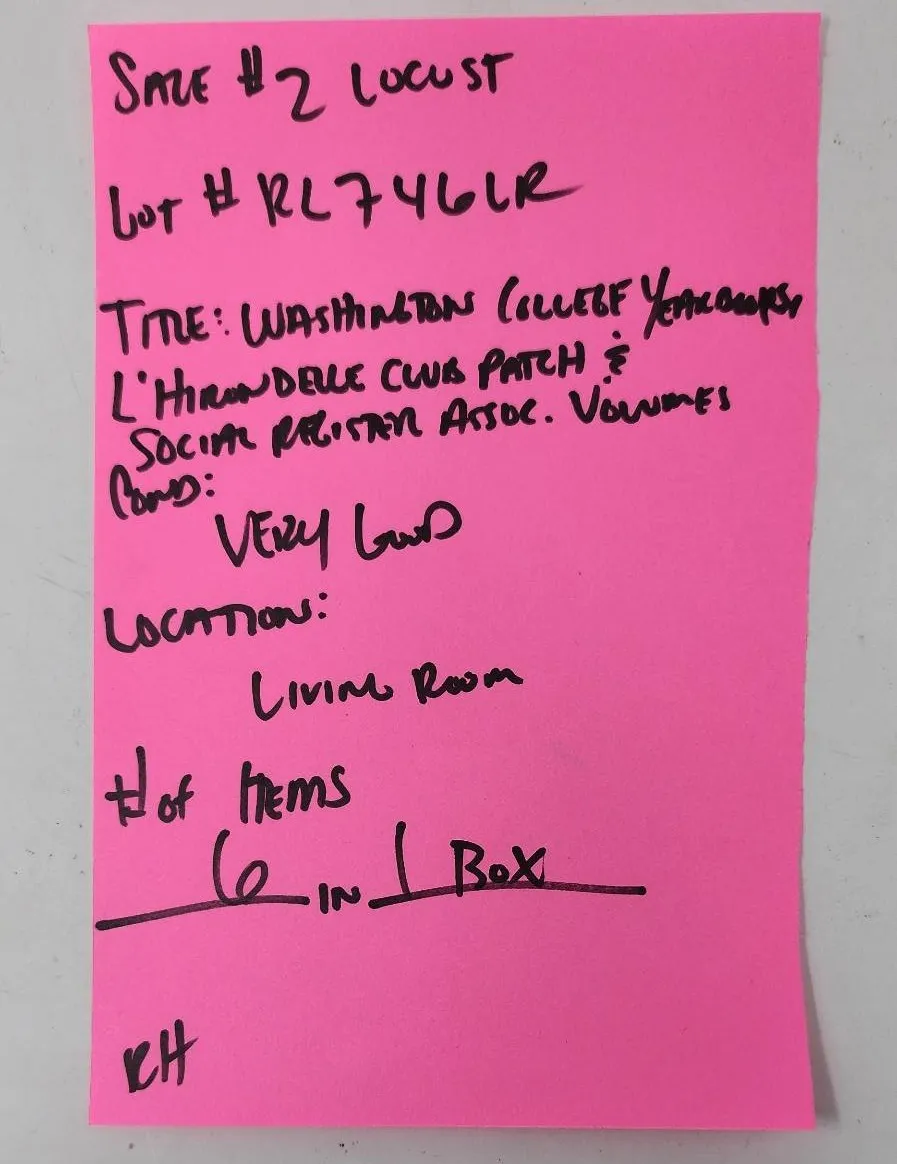 SALE #2 LOCUST
LOT # RL746LR
TITLE: WASHINGTON COLLEGE YEARBOOKS,
L'HIRONDELLE CLUB PATCH &
SOCIAL REGISTER ASSOC. VOLUMES
COND:
VERY GOOD
LOCATION:
LIVING ROOM
# OF ITEMS
6 IN 1 BOX
RH